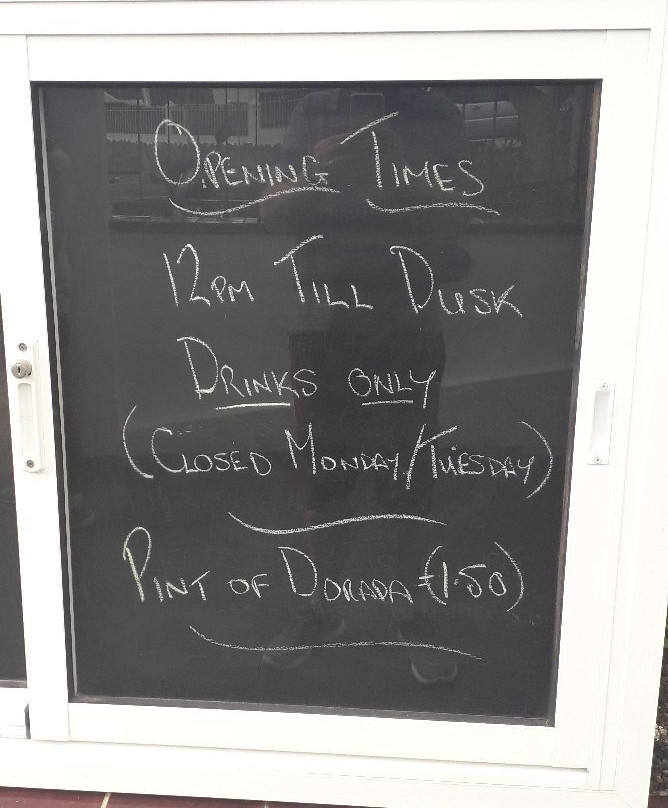 OPENING TIMES
12PM TILL DUSK
DRINKS ONLY
(CLOSED MONDAY/TUESDAY)
PINT OF DORADA (€1.50)